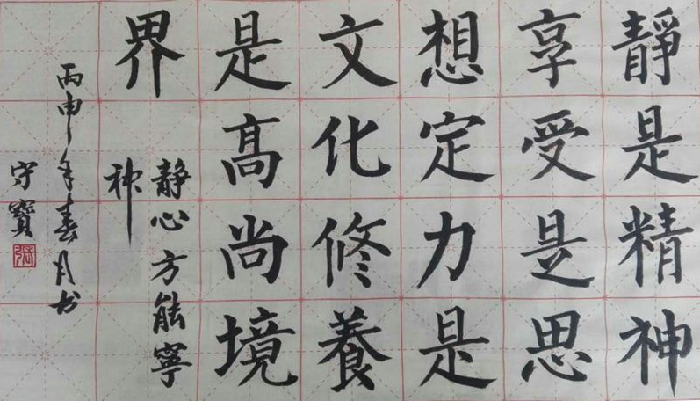 靜是精神
享受是思
想定力是
文化修養
是高尚境
界
静心方能寧
神
丙申年春月书
守寶